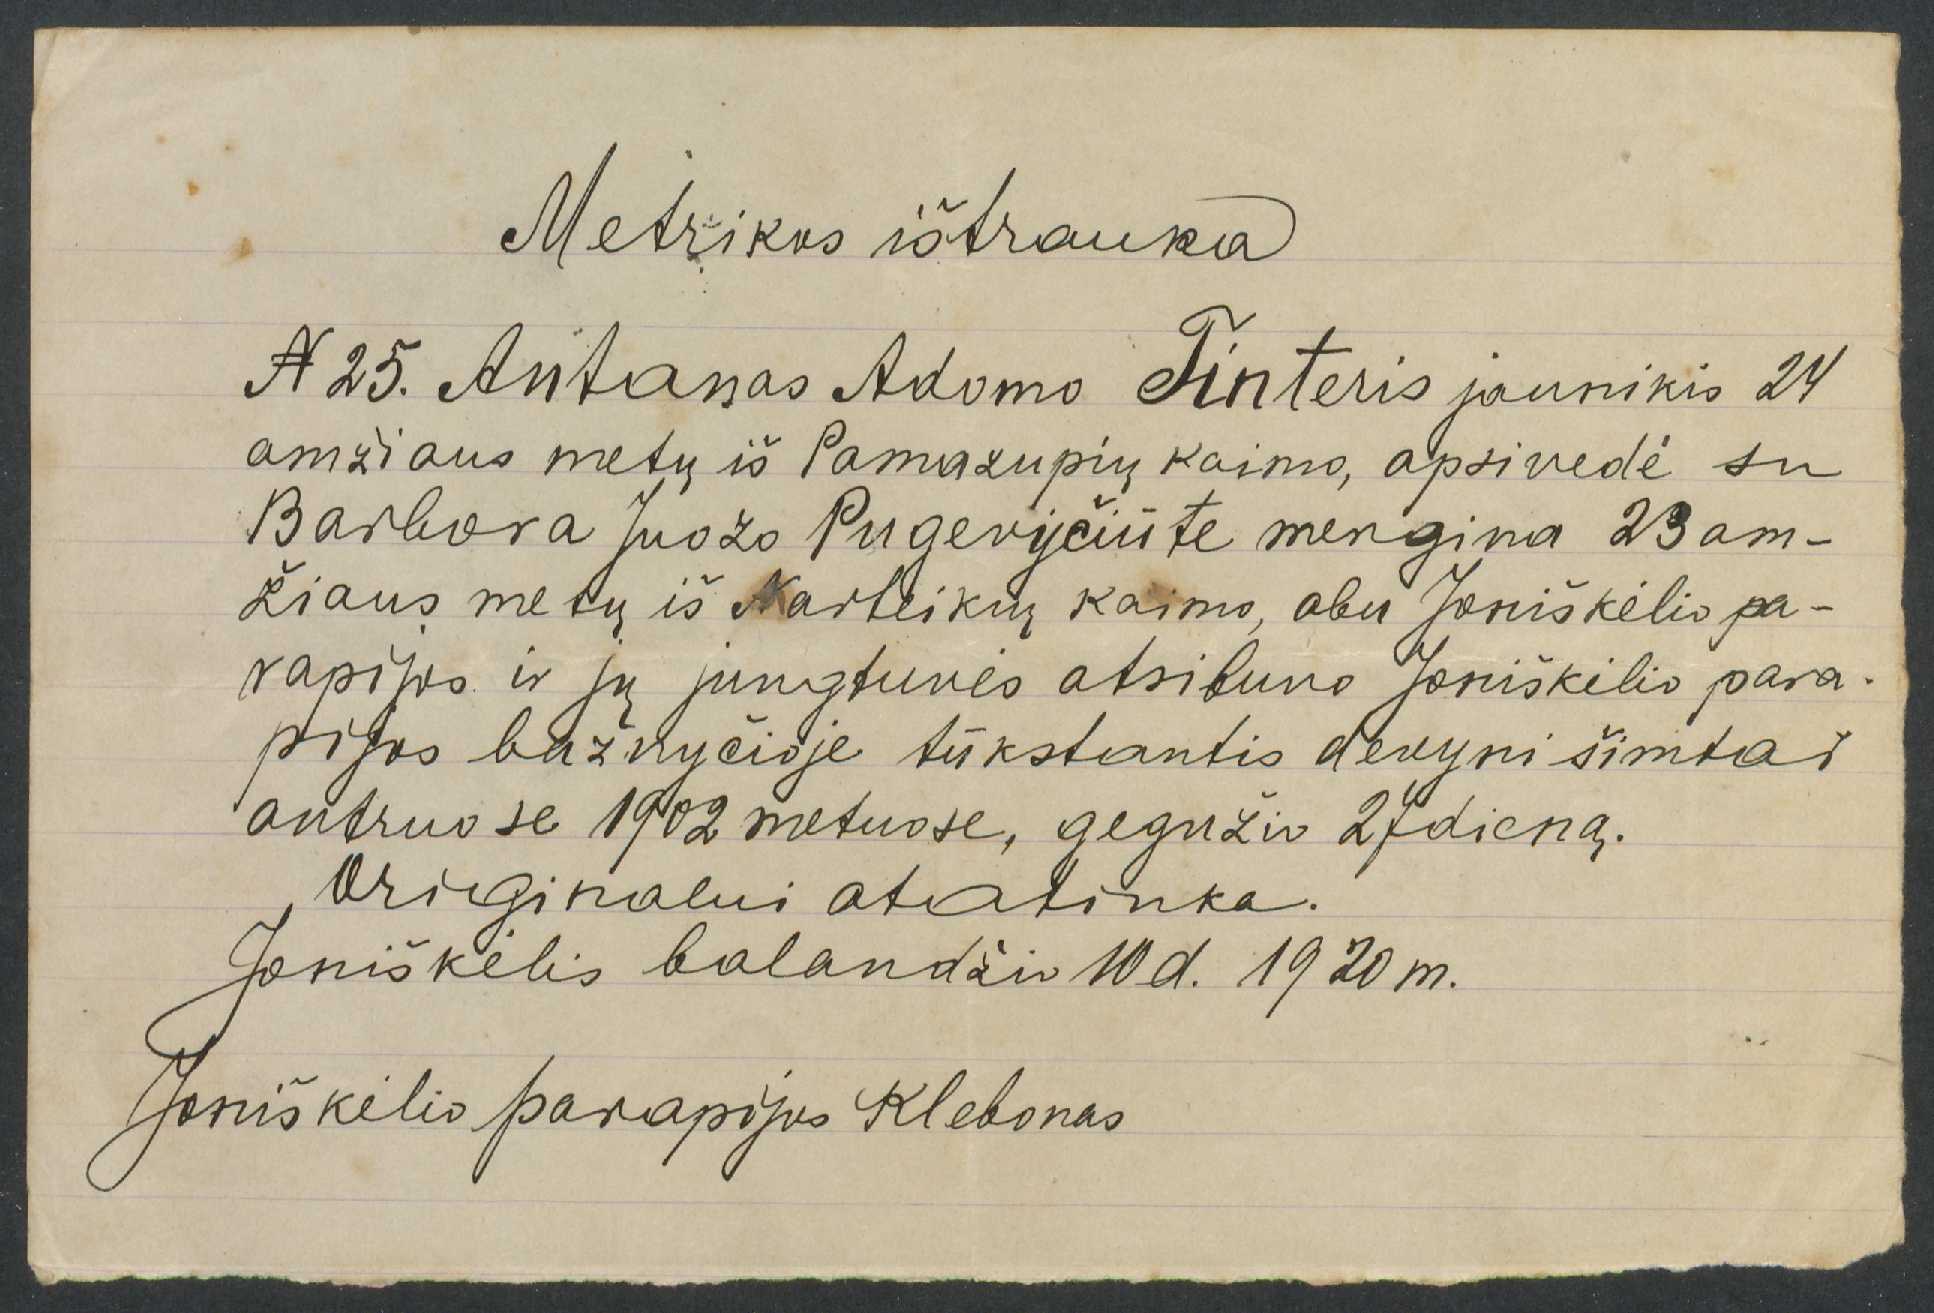 Metrikos ištrauka
N 25. Antanas Adomo Tinteris jaunikis 24
amžiaus metų iš Pamazupių kaimo, apsivedė su
Barbora Juozo Pugevyčiūte mergina 23 am-
žiaus metų iš Narteikių kaimo, abu Joniškėlio pa-
rapijos ir jų jungtuvės atsibuvo Joniškėlio para-
pijos bažnyčioje tūkstantis devyni šimtai
antruose 1902 metuose, gegužio 27 dieną.
Originalui atatinka.
Joniškėlis balandžio 10 d. 1920 m.
Joniškėlio parapijos Klebonas